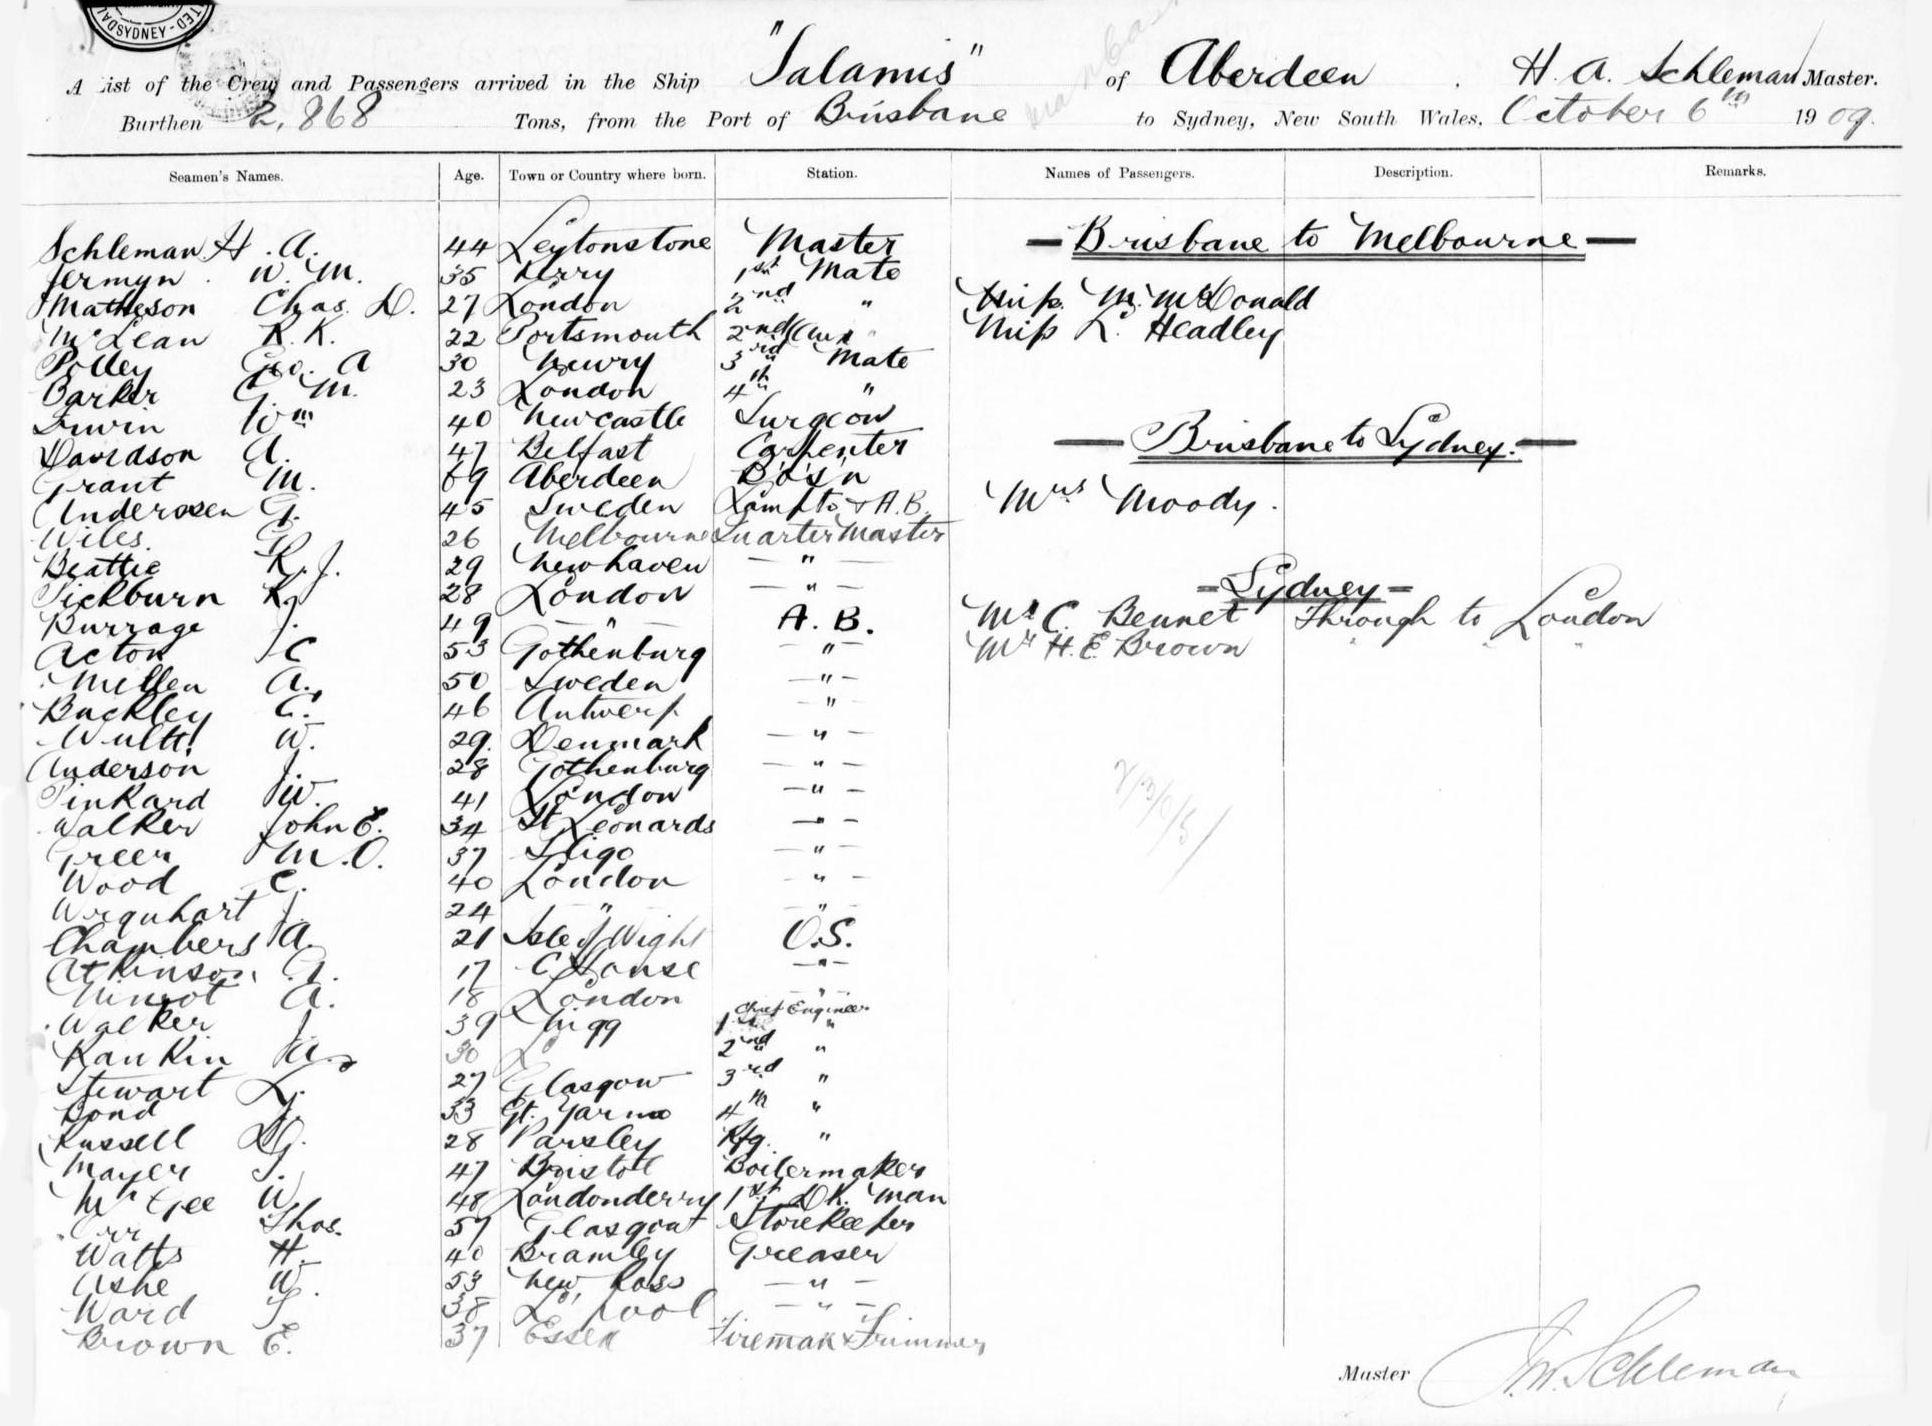 SYDNEY
A List of the Crew and Passengers arrived in the Ship "Salamis" of Aberdeen. H. A. Schleman Master.
Burthen 2,868 Tons, from the Port of Brisbane to Sydney, New South Wales, October 6th 1909.
Seamen's Names. Age. Town or Country where born. Station. Names of Passengers. Description. Remarks.
Schleman H. A. 44 Leytonstone Master — Brisbane to Melbourne —
Jermyn W. M. 35 Kerry 1st Mate
Matheson Chas. D. 27 London 2nd " Miss M. McDonald
McLean R. K. 22 Portsmouth 2nd (Aux " Miss L. Headley
Polley Geo. A 30 Newry 3rd Mate
Barker C. M. 23 London 4th "
Irwin Wm 40 Newcastle Surgeon
Davidson A. 47 Belfast Carpenter — Brisbane to Sydney. —
Grant M. 69 Aberdeen Bo's'n
Anderssen G. 45 Sweden Lampts & A.B. Mrs Moody.
Wiles. G. 26 Melbourne Quarter Master
Beattie R. J. 29 Newhaven — " —
Pickburn R. J 28 London — " — - Sydney -
Burrage J. 49 — " — A. B. Mr C. Bennet Through to London
Acton C 53 Gothenburg — " — Mr H. E. Brown " " "
Mellen A. 50 Sweden — " —
Buckley C. 46 Antwerp — " —
Wulff W. 29. Denmark — " —
Anderson J. 28 Gothenburg — " —
Pinkard W. 41 London — " —
Walker John E. 34 St Leonards — " —
Greer M. O. 37 Sligo — " —
Wood C. 40 London — " —
Urquhart J. 24 — " — — " —
Chambers A. 21 Isle of Wight O.S.
Atkinson G. 17 — " —
A. 18 London — " —
Walker J. 39 Nigg 1st Chief Engineer "
Rankin A. 30 2nd "
Stewart L. 27 Glasgow 3rd "
Bond J. 33 Gt. Yarmo 4th "
Russell D. G. 28 Parsley Rfg. "
Mayer S. 47 Bristol Boilermaker
McGee W 48 Londonderry 1st Dk. Man
Orr Thos. 57 Glasgow Storekeeper
Watts H. 40 Bramley Greaser
Ashe W. 53 New Ross — " —
Ward T 38 L'pool — " —
Brown E. 37 Essex Fireman & Trimmer
Master Schleman